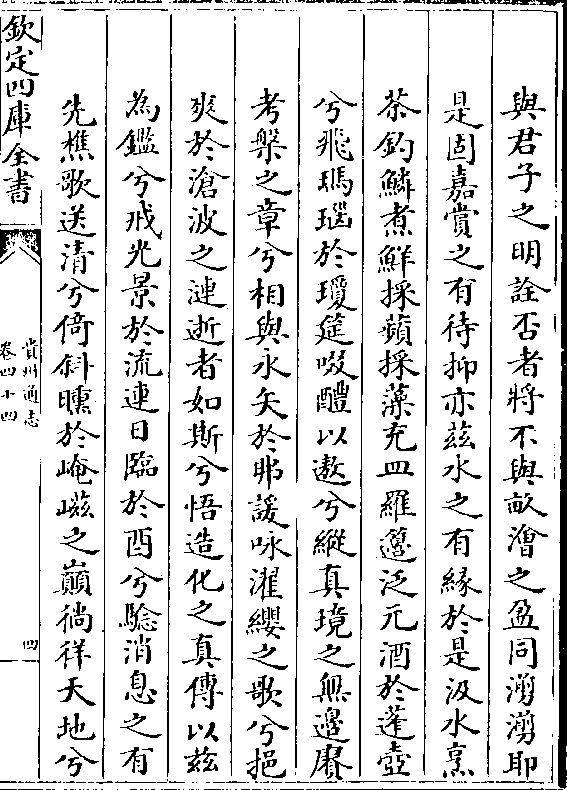 與君子之明詮否者將不與畝澮之盈同湧湧耶
是固嘉賞之有待抑亦茲水之有緣於是汲水烹
茶釣鱗煮鮮採蘋採藻充皿羅籩泛元酒於蓬壺
兮飛瑪瑙於瓊筵啜醴以遨兮縱真境之無邊賡
考槃之章兮相與永矢於弗諼咏濯纓之歌兮挹
爽於滄波之漣逝者如斯兮悟造化之真傳以茲
為鑑兮戒光景於流連日臨於酉兮驗消息之有
先樵歌送清兮倚斜曛於崦嵫之巔徜徉天地兮
欽定四庫全書
貴州通志
卷四十四
四